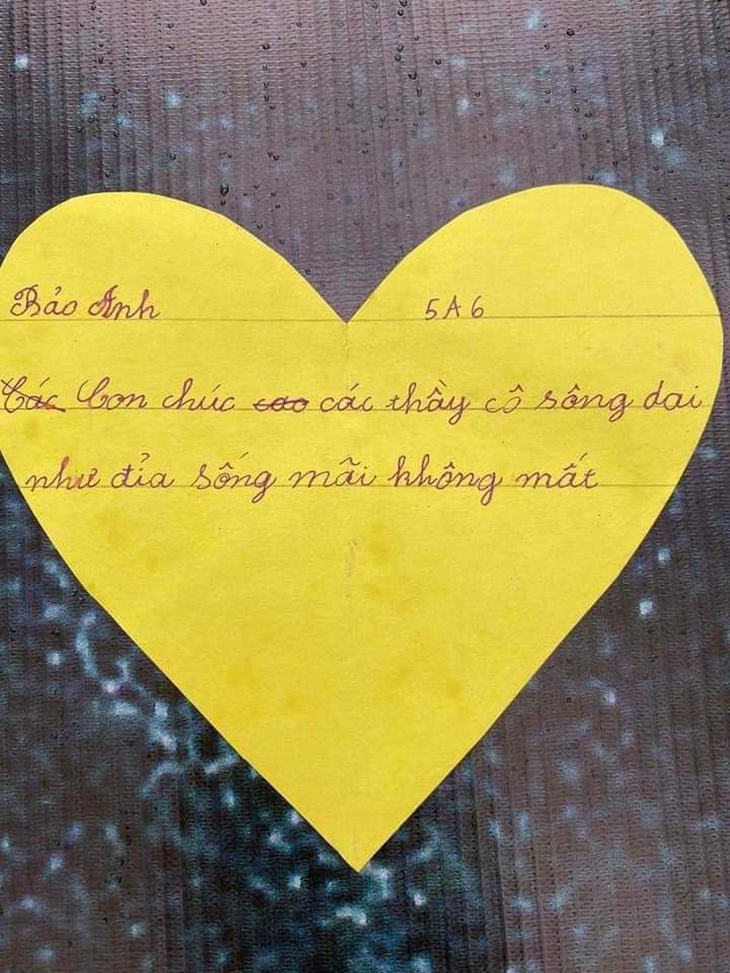 Bảo Anh 5A6
Các Con chúc cao các thầy cô sông dai
như đỉa sống mãi không mất